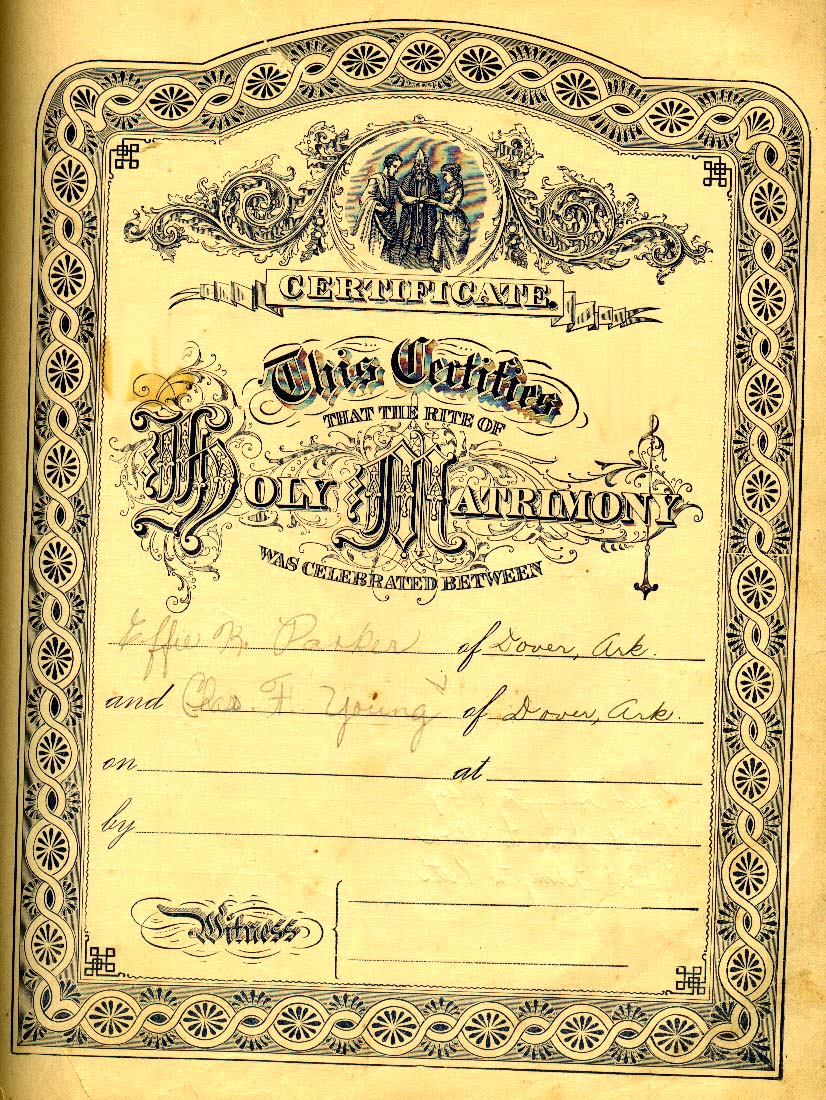 CERTIFICATE.
This Certifies
THAT THE RITE OF
HOLY MATRIMONY
WAS CELEBRATED BETWEEN
Effie Parker of Dover, Ark.
and Chas. F Young of Dover, Ark.
on at
by
Witness